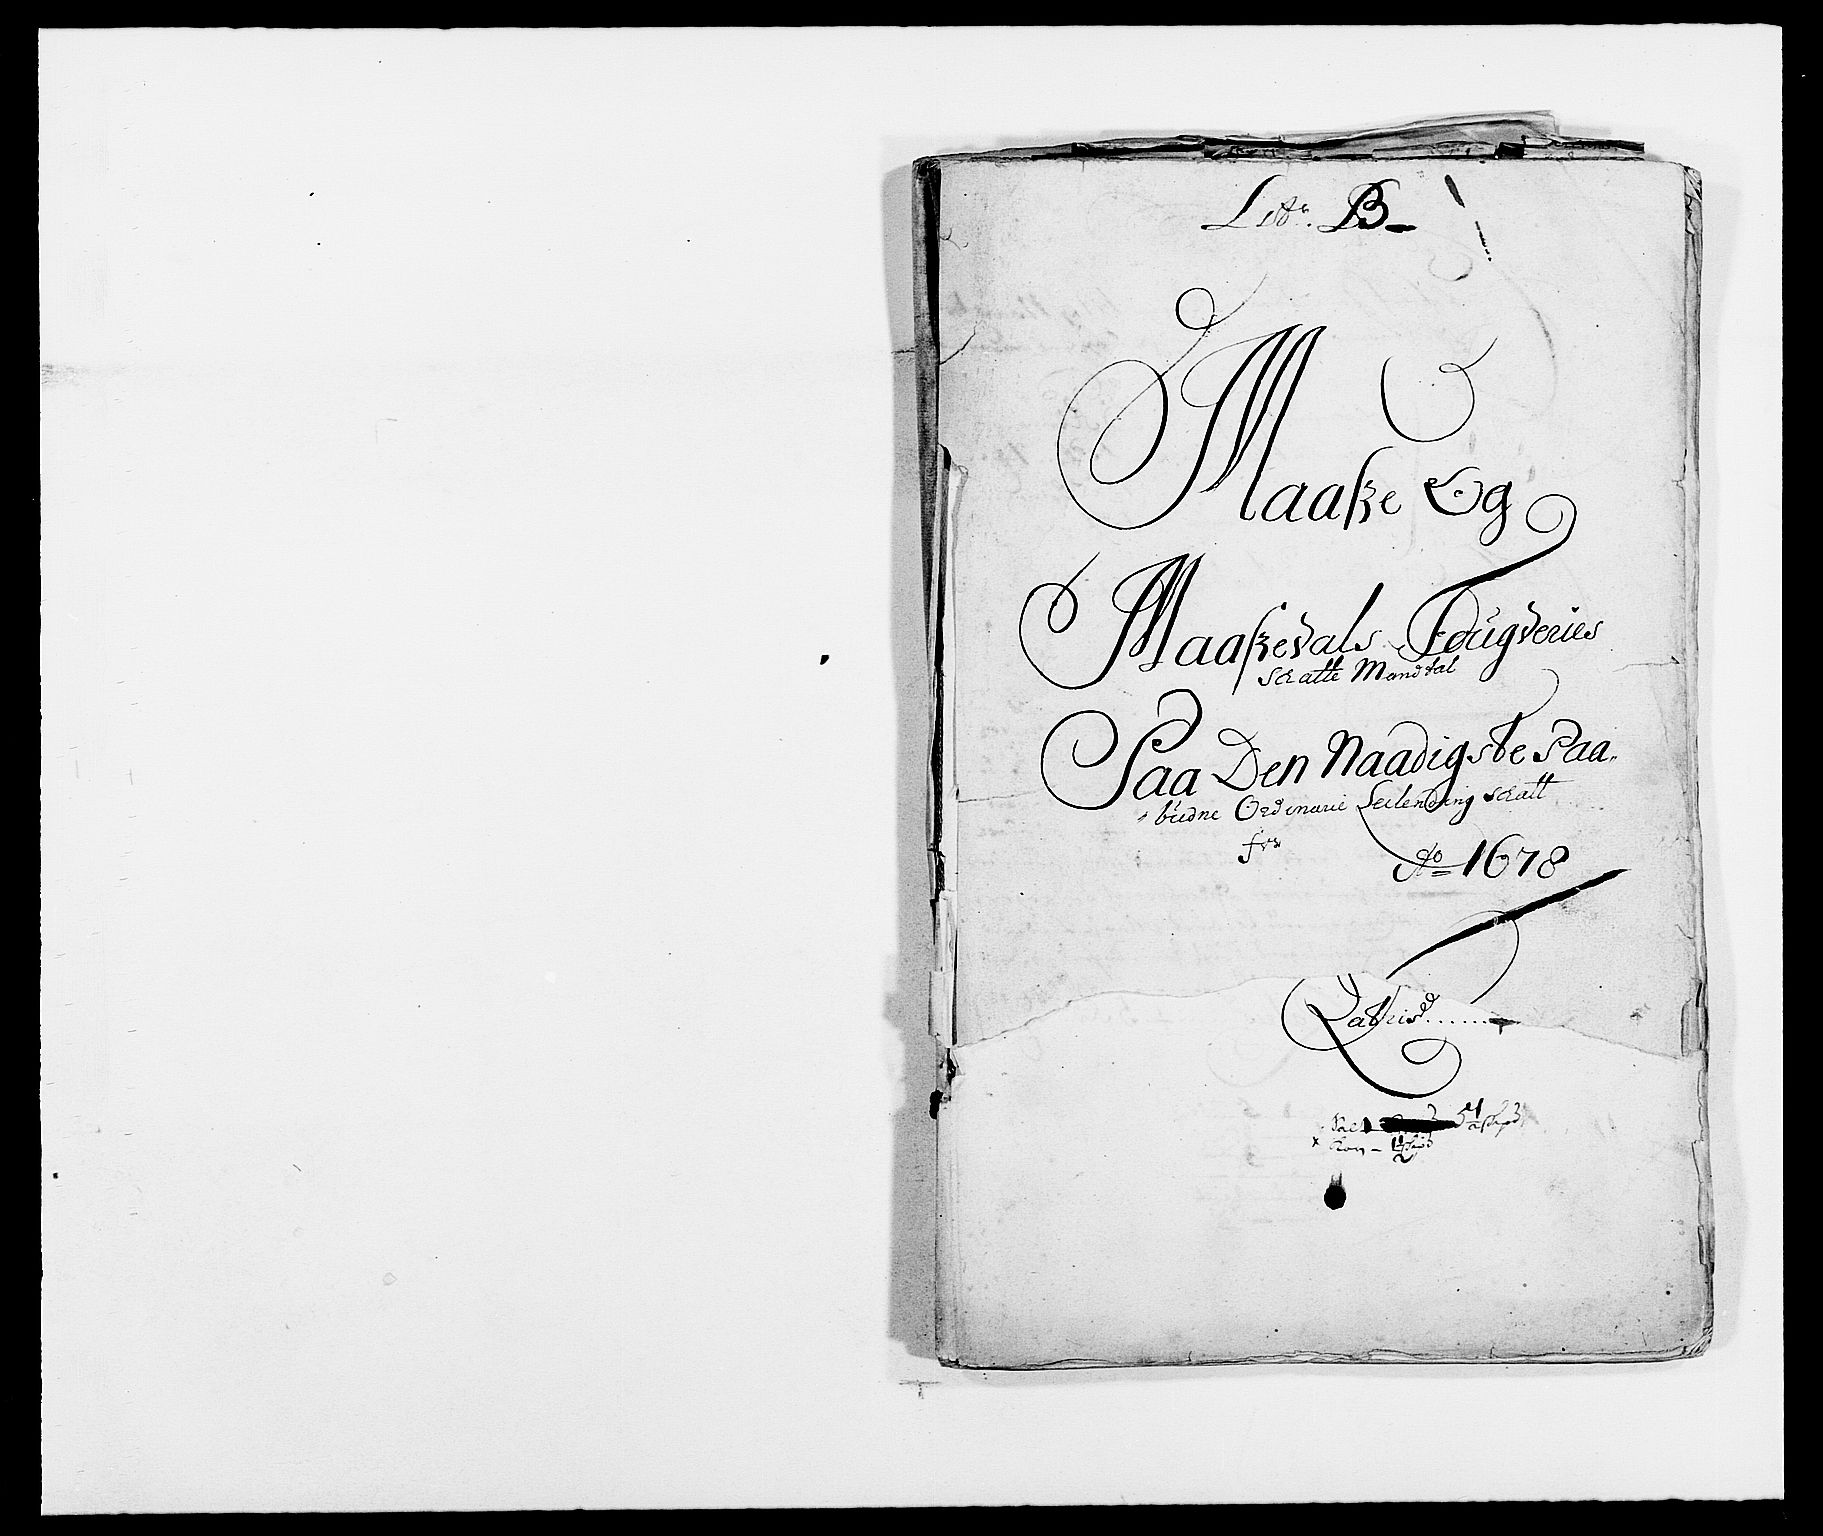 Litr. B
Maaße Og
Maaßedals Fougderies
Skatte Mandtal
Paa Den Naadigste Paa-
büdne Ordinarie Leilending skatt
for
Ao 1678